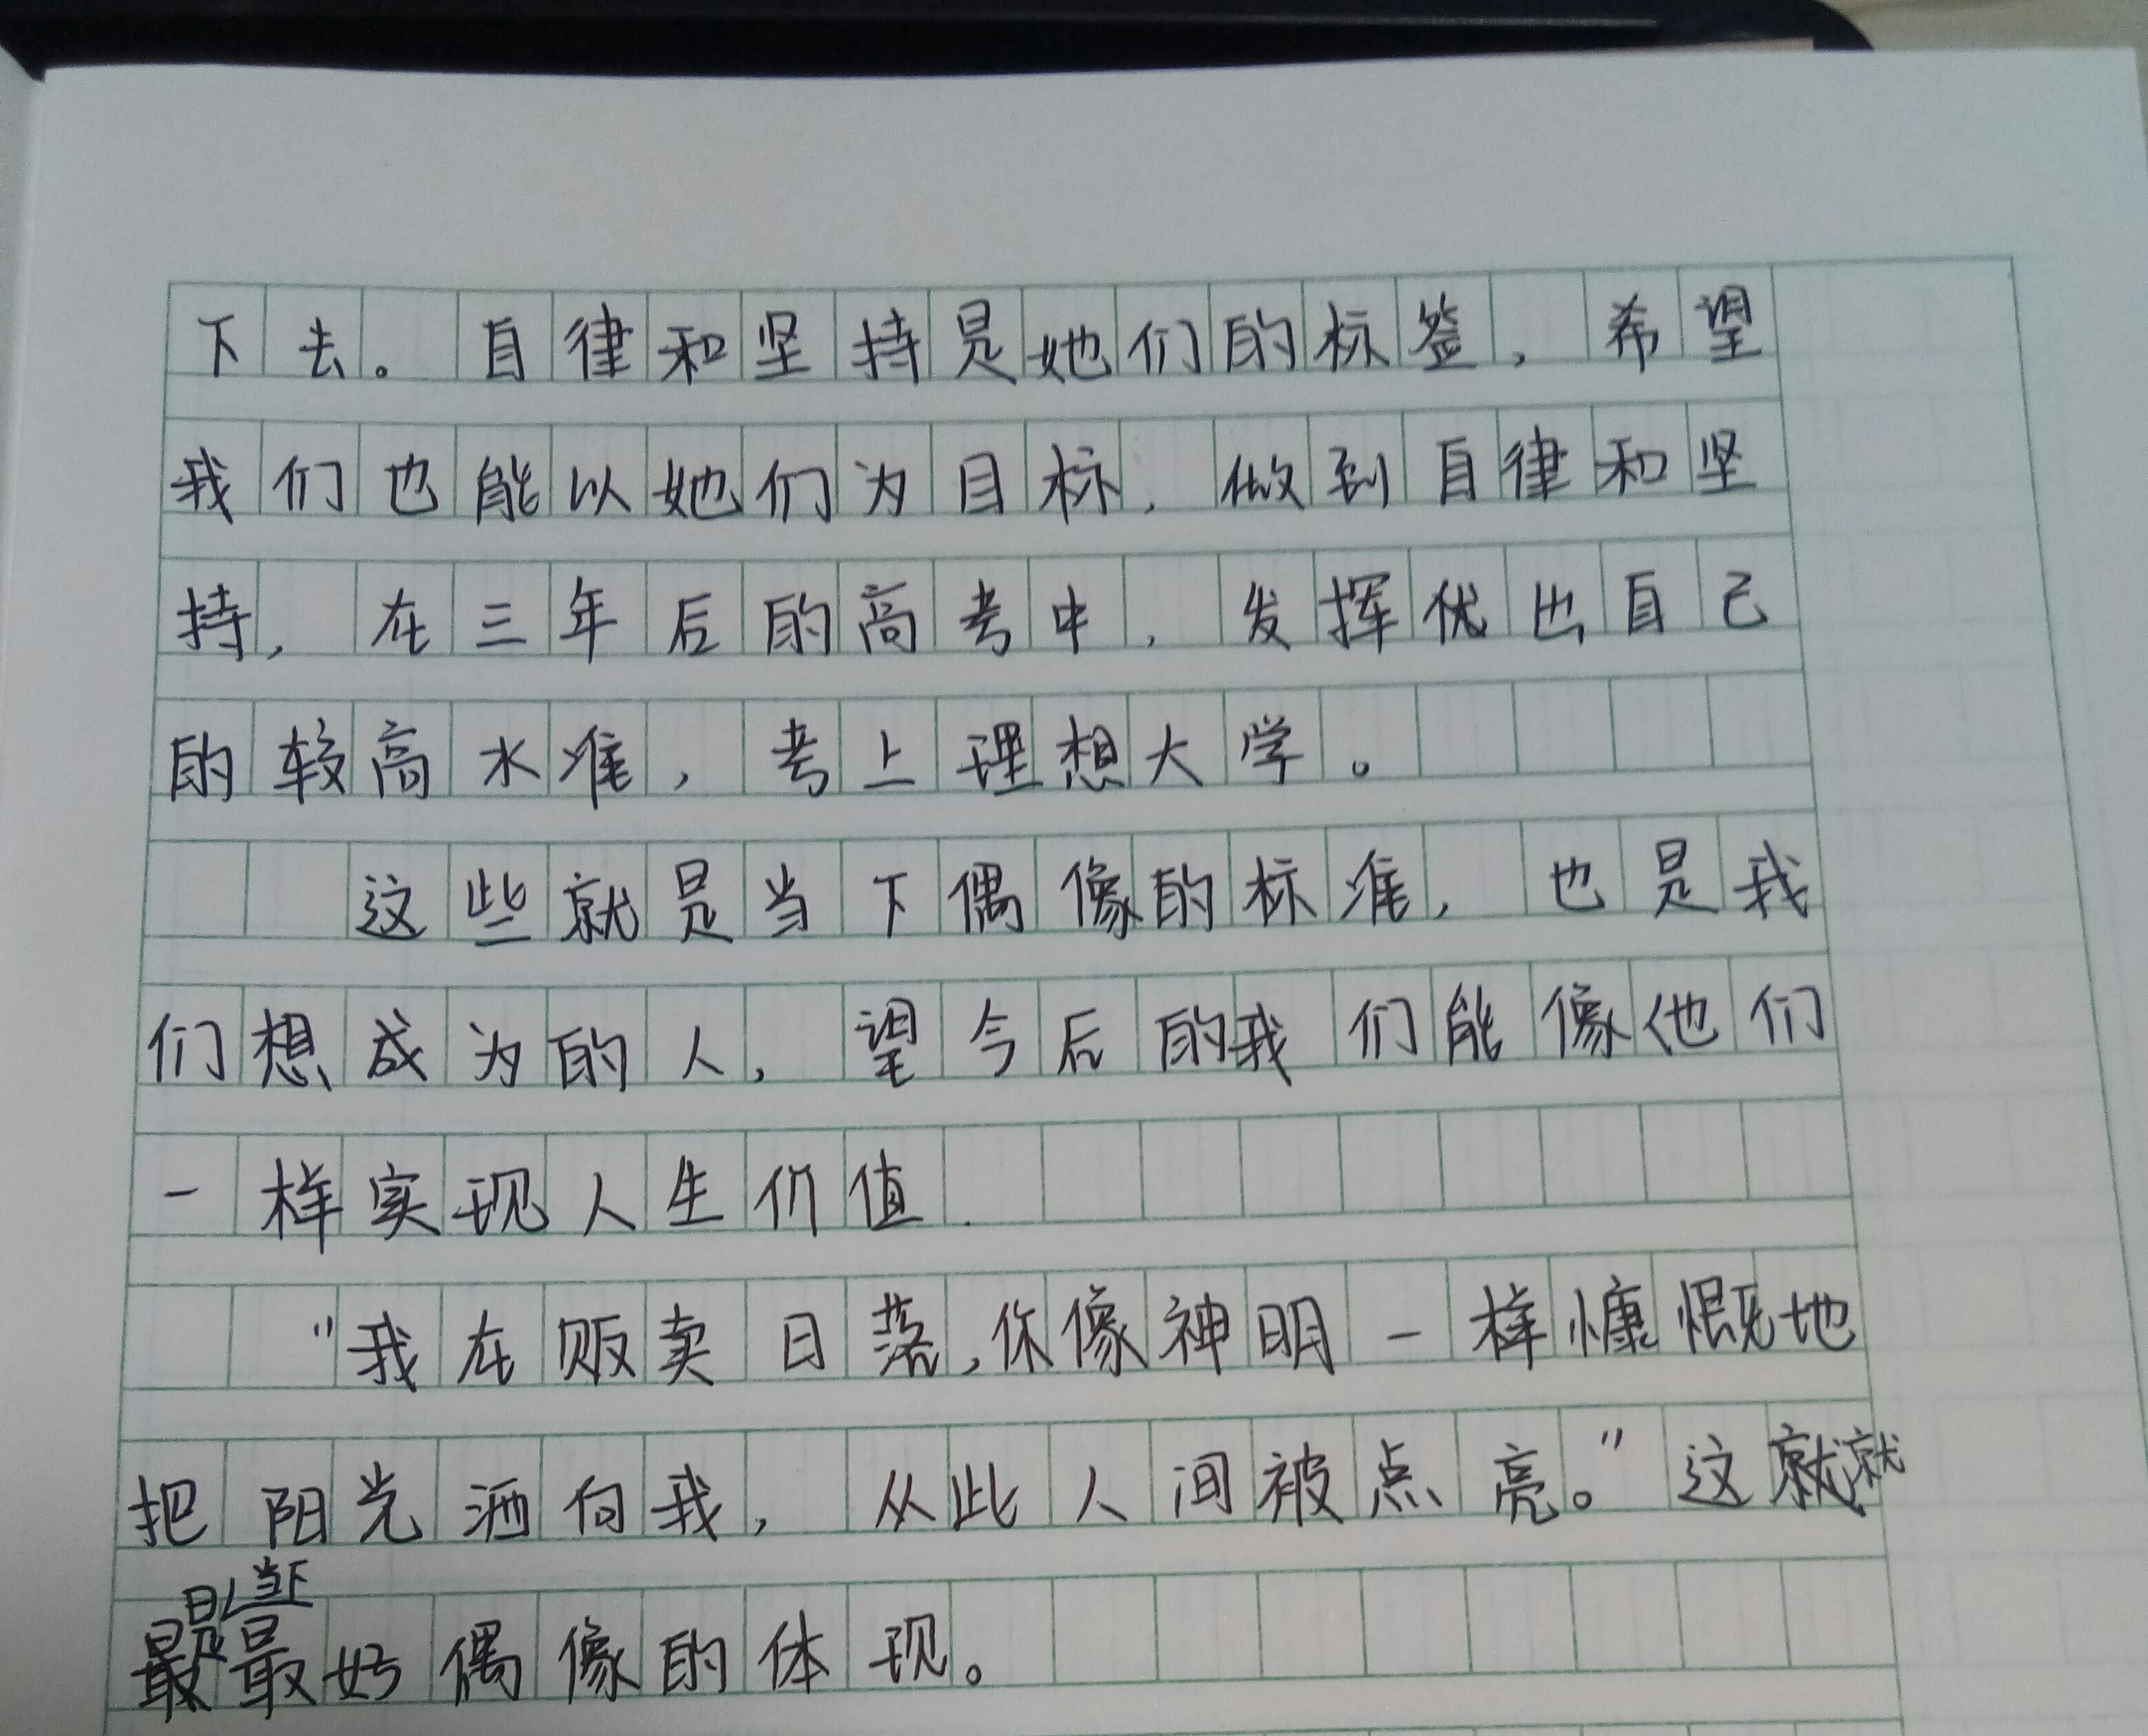 下去。自律和坚持是她们的标签，希望
我们也能以她们为目标，做到自律和坚
持，在三年后的高考中，发挥优出自己
的较高水准，考上理想大学。
这些就是当下偶像的标准，也是我
们想成为的人，望今后的我们能像他们
一样实现人生价值.
"我在贩卖日落，你像神明一样慷慨地
把阳光洒向我，从此人间被点亮。"这就
是当下
最好偶像的体现。